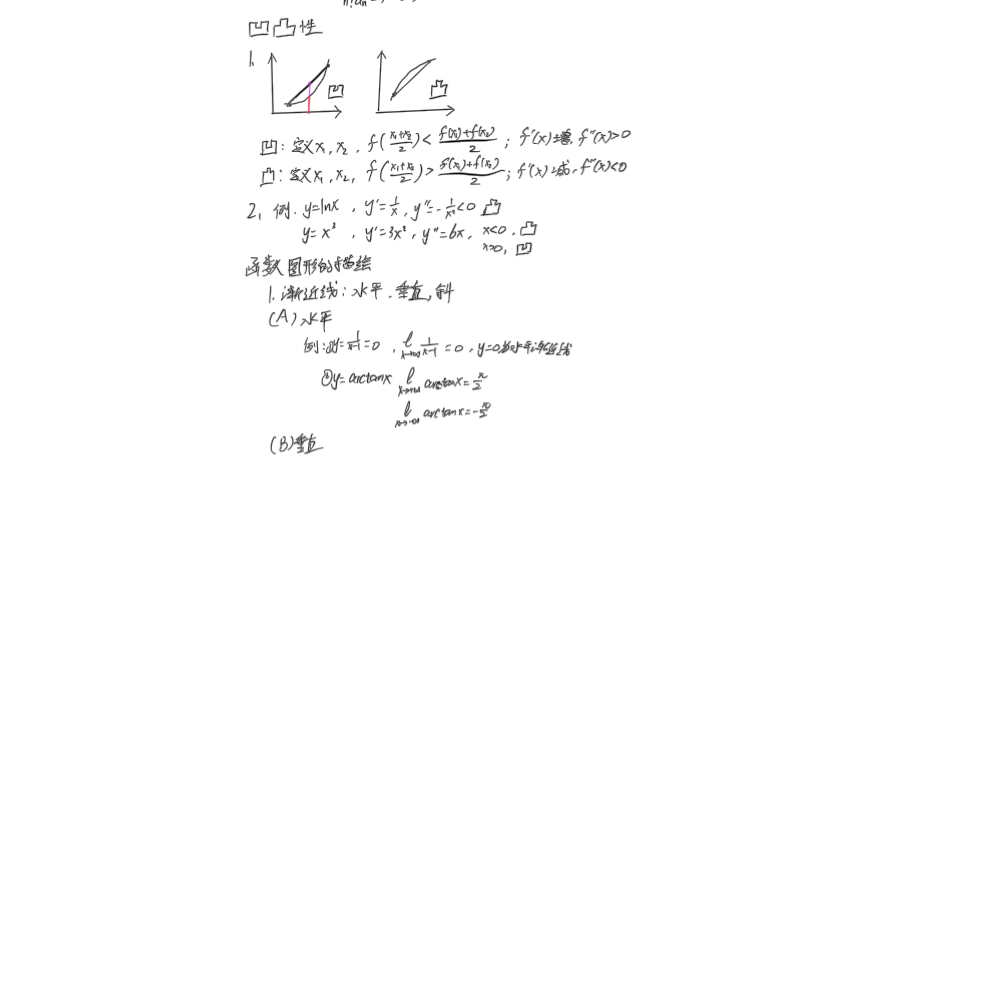 凹凸性
1.
凹
凸
凹: 定义x₁, x₂, f((x₁+x₂)/2) < (f(x₁)+f(x₂))/2 ; f'(x)增, f''(x)>0
凸: 定义x₁, x₂, f((x₁+x₂)/2) > (f(x₁)+f(x₂))/2 ; f'(x)减, f''(x)<0
2, 例. y=lnx , y'=1/x , y''=-1/x²<0 凸
y=x³ , y'=3x², y''=6x, x<0, 凸
x>0, 凹
函数图形的描绘
1. 渐近线: 水平. 垂直, 斜
(A) 水平
例: y=1/(x-1)=0 , 1/(x-1) =0 , y=0为水平渐近线
② y=arctanx ℓ x→+∞ arctanx=π/2
ℓ x→-∞ arctanx=-π/2
(B) 垂直